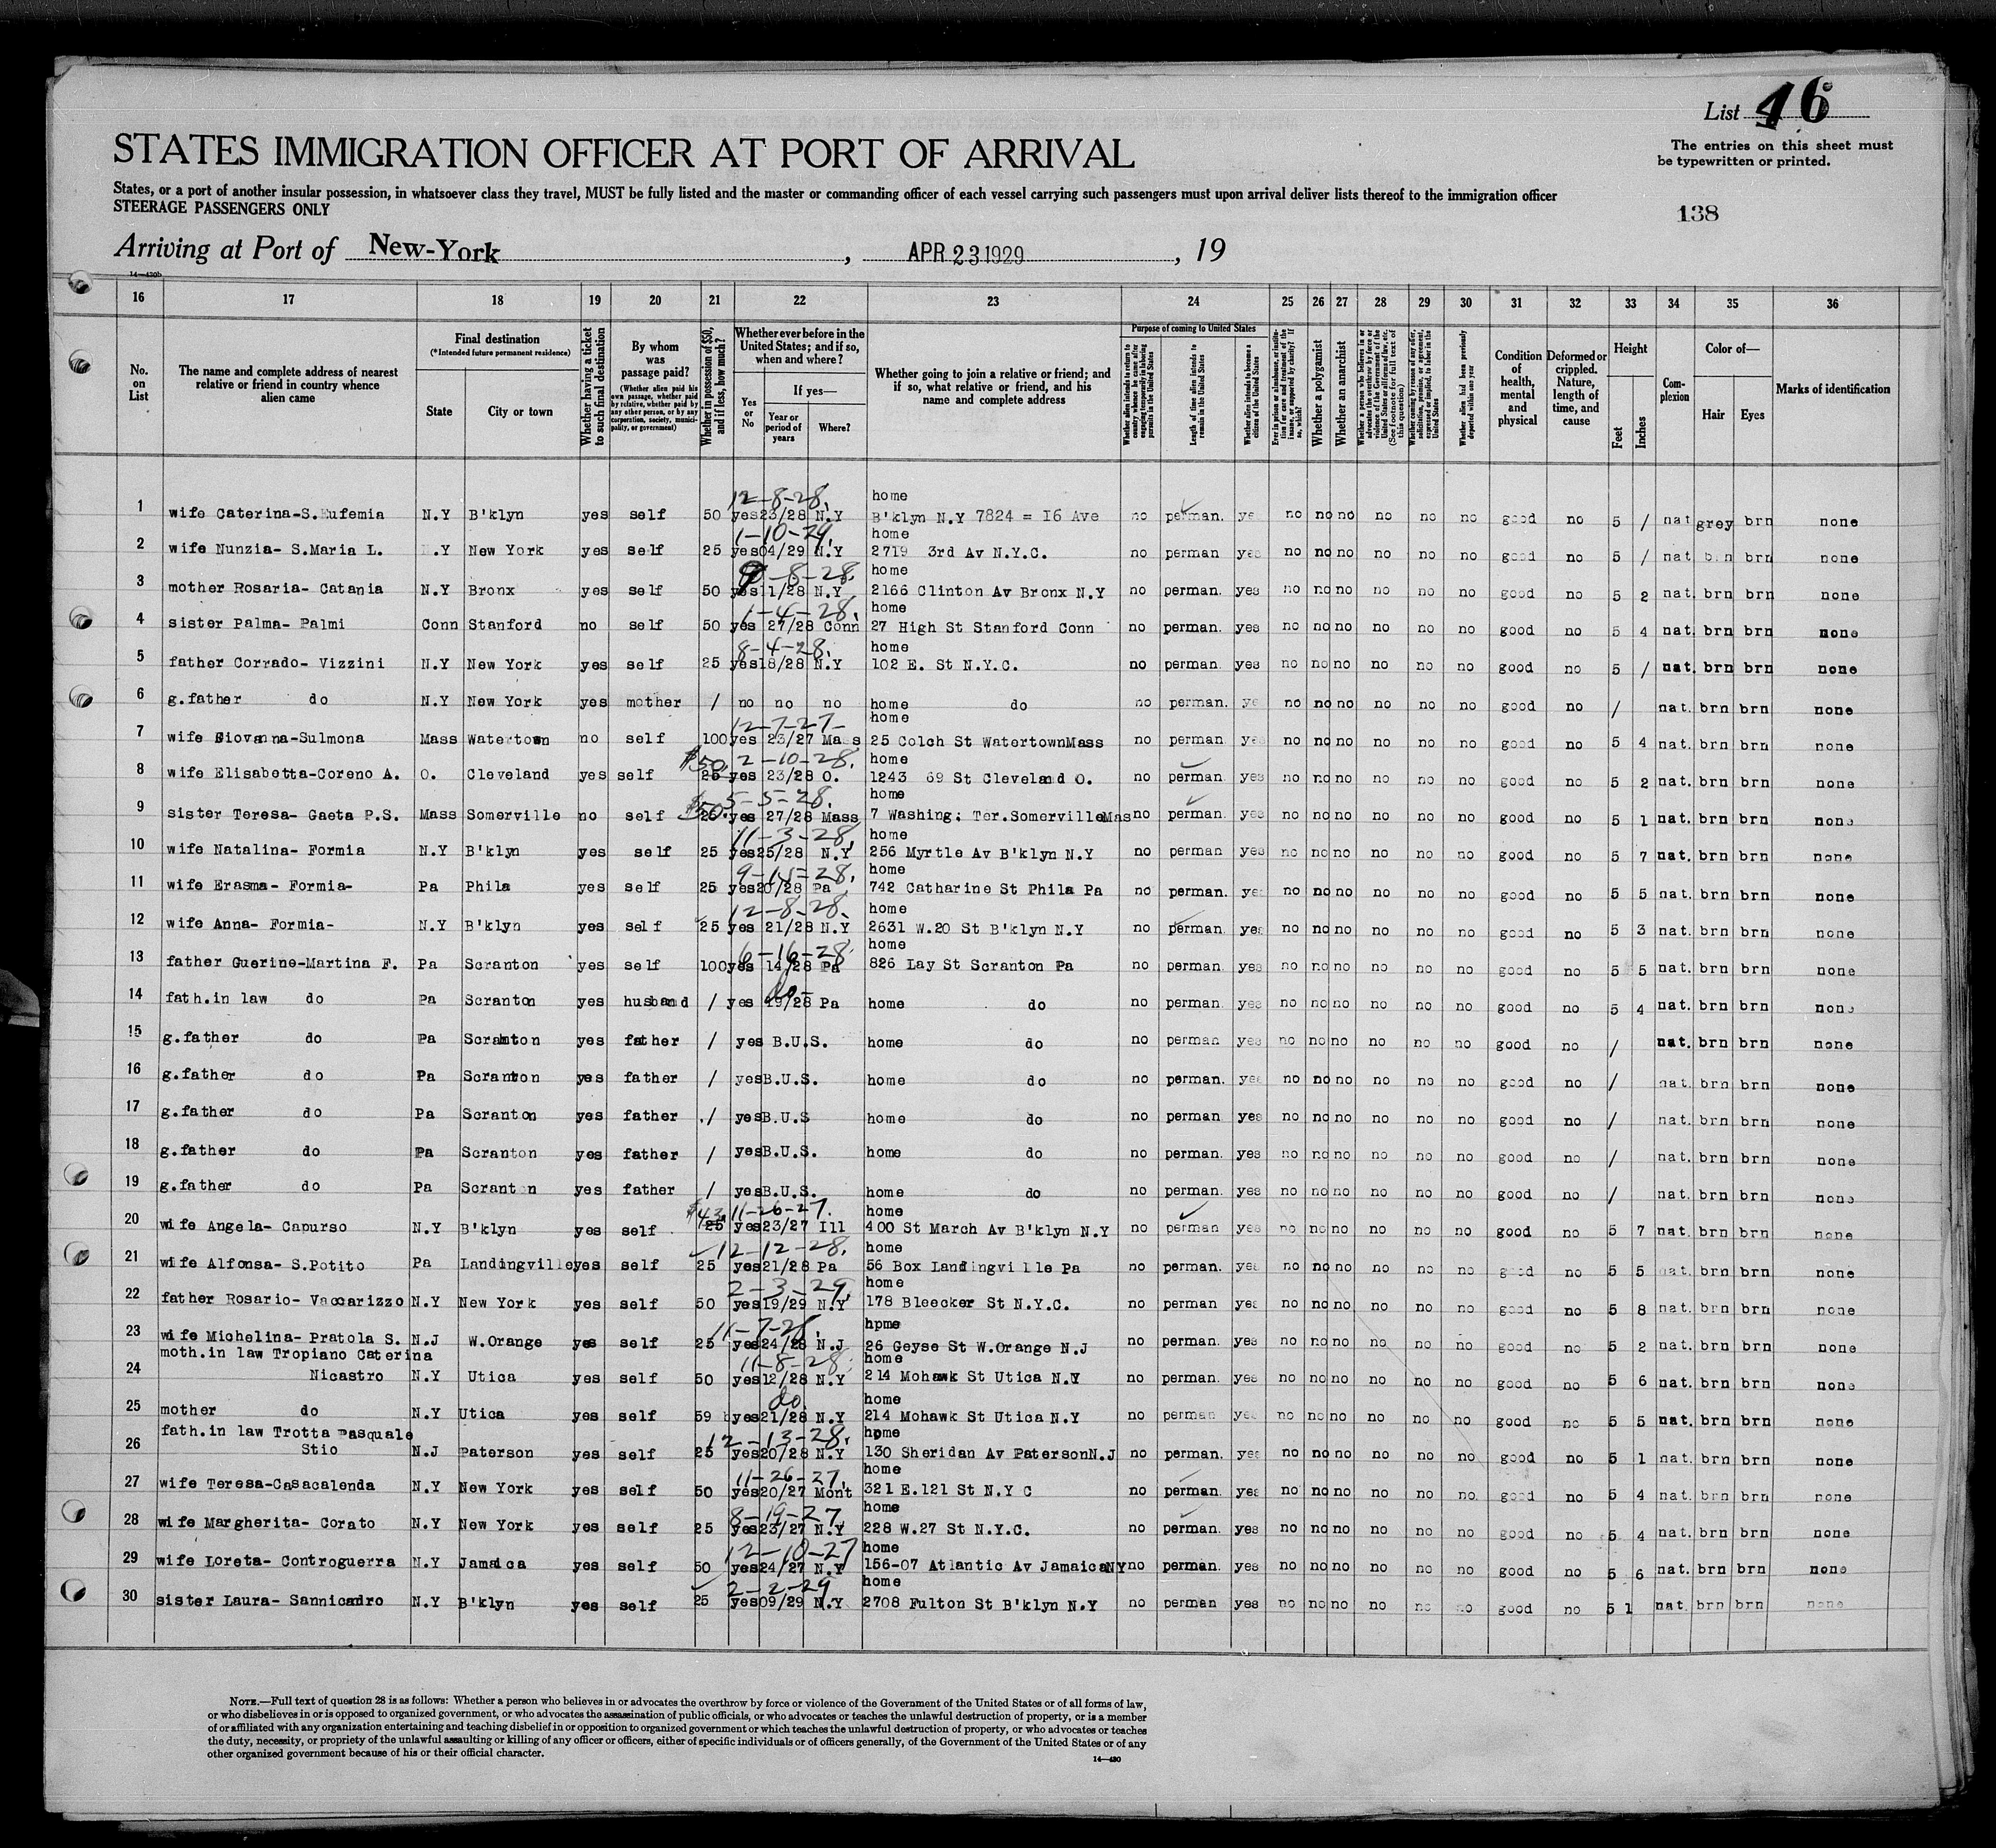 List 46
The entries on this sheet must
be typewritten or printed.
STATES IMMIGRATION OFFICER AT PORT OF ARRIVAL
States, or a port of another insular possession, in whatsoever class they travel, MUST be fully listed and the master or commanding officer of each vessel carrying such passengers must upon arrival deliver lists thereof to the immigration officer
STEERAGE PASSENGERS ONLY
138
Arriving at Port of New-York, APR 23 1929, 19
14—430b
16 17 18 19 20 21 22 23 24 25 26 27 28 29 30 31 32 33 34 35 36
No. on List
The name and complete address of nearest relative or friend in country whence alien came
Final destination
(*Intended future permanent residence)
State
City or town
Whether having a ticket to such final destination
By whom was passage paid?
(Whether alien paid his own passage, whether paid by relative, whether paid by any other person, or by any corporation, society, municipality, or government)
Whether in possession of $50, and if less, how much?
Whether ever before in the United States; and if so, when and where?
Yes or No
If yes—
Year or period of years
Where?
Whether going to join a relative or friend; and if so, what relative or friend, and his name and complete address
Purpose of coming to United States
Length of time alien intends to remain in the United States
Whether alien intends to become a citizen of the United States
Whether a polygamist
Whether an anarchist
Whether alien had been previously deported within one year
Condition of health, mental and physical
Deformed or crippled. Nature, length of time, and cause
Height
Feet
Inches
Complexion
Color of—
Hair
Eyes
Marks of identification
12-8-28. home
1 wife Caterina-S.Eufemia N.Y B'klyn yes self 50 yes 23/28 N.Y B'klyn N.Y 7824 = I6 Ave no perman. ye no no no no no no good no 5 / nat grey brn none
1-10-29. home
2 wife Nunzia- S.Maria L. .Y New York yes self 25 yes 04/29 N.Y 2719 3rd Av N.Y.C. no perman yes no no no no no no good no 5 / nat brn brn none
9-8-28. home
3 mother Rosaria- Catania N.Y Bronx yes self 50 yes 11/28 N.Y 2166 Clinton Av Bronx N.Y no perman. yes no no no no no no good no 5 2 nat. brn brn none
1-4-28. home
4 sister Palma- Palmi Conn Stanford no self 50 yes 27/28 Conn 27 High St Stanford Conn no perman. yes no no no no no no good no 5 4 nat. brn brn none
8-4-28. home
5 father Corrado- Vizzini N.Y New York yes self 25 yes 18/28 N.Y 102 E. St N.Y.C. no perman. yes no no no no no no good no 5 / nat. brn brn none
6 g.father do N.Y New York yes mother / no no no home do no perman. ye no no no no no no good no / nat. brn brn none
12-7-27- home
7 wife Giovanna-Sulmona Mass Watertown no self 100 yes 23/27 Mass 25 Colch St WatertownMass no perman ye no no no no no no good no 5 4 nat. brn brn none
$50. 2-10-28. home
8 wife Elisabetta-Coreno A. O. Cleveland yes self 25 yes 23/28 O. 1243 69 St Cleveland O. no perman yes no no no no no no good no 5 2 nat. brn brn none
$50. 5-5-28. home
9 sister Teresa- Gaeta P.S. Mass Somerville no self 25 yes 27/28 Mass 7 Washing: Ter.SomervilleMas no perman. yes no no no no no no good no 5 1 nat. brn brn none
11-3-28, home
10 wife Natalina- Formia N.Y B'klyn yes self 25 yes 25/28 N.Y 256 Myrtle Av B'klyn N.Y no perman yes no no no no no no good no 5 7 nat. brn brn none
9-15-28. home
11 wife Erasma- Formia- Pa Phila yes self 25 yes 20/28 Pa 742 Catharine St Phila Pa no perman. yes no no no no no no good no 5 5 nat. brn brn none
12-8-28. home
12 wife Anna- Formia- N.Y B'klyn yes self 25 yes 21/28 N.Y 2631 W.20 St B'klyn N.Y no perman. yes no no no no no no good no 5 3 nat. brn brn none
6-16-28. home
13 father Guerine-Martina F. Pa Scranton yes self 100 yes 14/28 Pa 826 Lay St Scranton Pa no perman. yes no no no no no no good no 5 5 nat. brn brn none
do-
14 fath.in law do Pa Scranton yes husband / yes 19/28 Pa home do no perman. yes no no no no no no good no 5 4 nat. brn brn none
15 g.father do Pa Scranton yes father / yes B.U.S. home do no perman yes no no no no no no good no / nat. brn brn none
16 g.father do Pa Scranton yes father / yes B.U.S. home do no perman. yes no no no no no no good no / nat. brn brn none
17 g.father do Pa Scranton yes father / yes B.U.S home do no perman yes no no no no no no good no / nat. brn brn none
18 g.father do Pa Scranton yes father / yes B.U.S. home do no perman. yes no no no no no no good no / nat. brn brn none
19 g.father do Pa Scranton yes father / yes B.U.S. home do no perman. yes no no no no no no good no / nat. brn brn none
$43. 11-26-27. home
20 wife Angela- Capurso N.Y B'klyn yes self 25 yes 23/27 Ill 400 St March Av B'klyn N.Y no perman yes no no no no no no good no 5 7 nat. brn brn none
12-12-28. home
21 wife Alfonsa- S.Potito Pa Landingville yes self 25 yes 21/28 Pa 56 Box Landingville Pa no perman. yes no no no no no no good no 5 5 nat. brn brn none
2-3-29. home
22 father Rosario- Vaccarizzo N.Y New York yes self 50 yes 19/29 N.Y 178 Bleecker St N.Y.C. no perman yes no no no no no no good no 5 8 nat. brn brn none
11-7-28. hpme
23 wife Michelina- Pratola S. N.J W.Orange yes self 25 yes 24/28 N.J 26 Geyse St W.Orange N.J no perman. yes no no no no no no good no 5 2 nat. brn brn none
moth.in law Tropiano Caterina 11-8-28. home
24 Nicastro N.Y Utica yes self 50 yes 12/28 N.Y 214 Mohawk St Utica N.Y no perman. yes no no no no no no good no 5 6 nat. brn brn none
do. home
25 mother do N.Y Utica yes self 59 yes 21/28 N.Y 214 Mohawk St Utica N.Y no perman yes no no no no no no good no 5 5 nat. brn brn none
fath.in law Trotta Pasquale 12-13-28. home
26 Stio N.J Paterson yes self 25 yes 20/28 N.Y 130 Sheridan Av PatersonN.J no perman. yes no no no no no no good no 5 1 nat. brn brn none
11-26-27, home
27 wife Teresa-Casacalenda N.Y New York yes self 50 yes 20/27 Mont 321 E.121 St N.Y C no perman. yes no no no no no no. good no 5 4 nat. brn brn none
8-19-27. home
28 wife Margherita- Corato N.Y New York yes self 25 yes 23/27 N.Y 228 W.27 St N.Y.C. no perman. yes no no no no no no good no 5 4 nat. brn brn none
12-10-27 home
29 wife Loreta- Controguerra N.Y Jamaica yes self 50 yes 24/27 N.Y 156-07 Atlantic Av JamaicaNY no perman. yes no no no no no no good no 5 6 nat. brn brn none
2-2-29 home
30 sister Laura- Sannicandro N.Y B'klyn yes self 25 yes 09/29 N.Y 2708 Fulton St B'klyn N.Y no perman yes no no no no no no good no 5 1 nat. brn brn none
NOTE.—Full text of question 28 is as follows: Whether a person who believes in or advocates the overthrow by force or violence of the Government of the United States or of all forms of law,
or who disbelieves in or is opposed to organized government, or who advocates the assassination of public officials, or who advocates or teaches the unlawful destruction of property, or is a member
of or affiliated with any organization entertaining and teaching disbelief in or opposition to organized government or which teaches the unlawful destruction of property, or who advocates or teaches
the duty, necessity, or propriety of the unlawful assaulting or killing of any officer or officers, either of specific individuals or of officers generally, of the Government of the United States or of any
other organized government because of his or their official character.
14—430